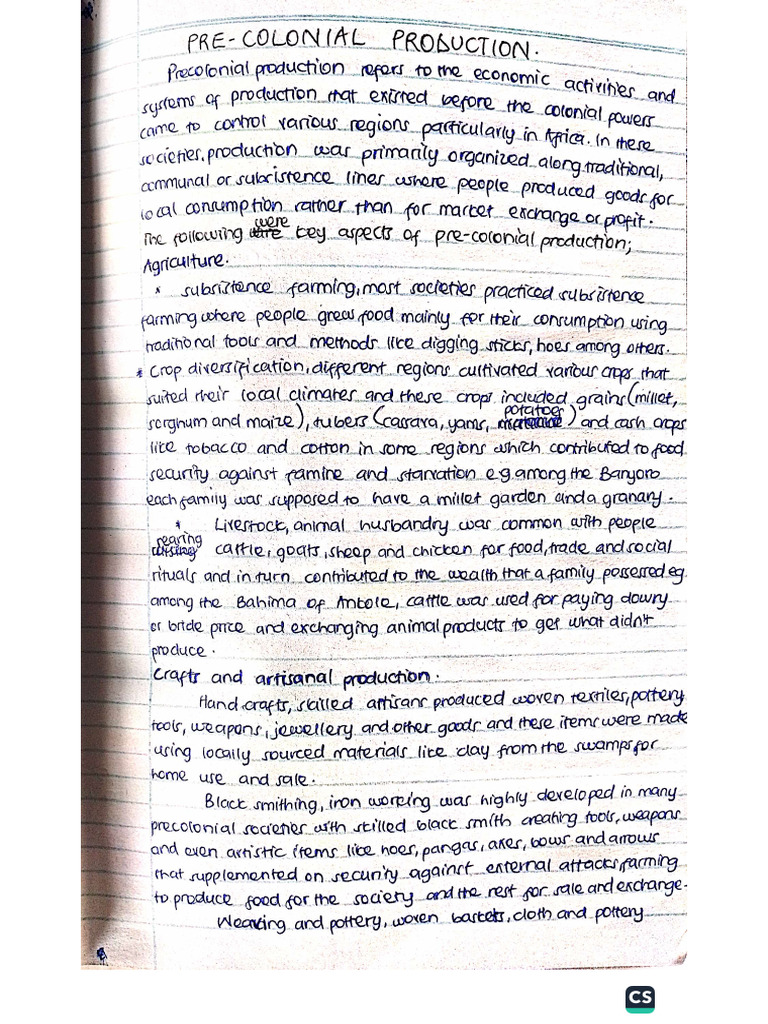 PRE-COLONIAL PRODUCTION.
Precolonial production refers to the economic activities and
systems of production that existed before the colonial powers
came to control various regions particularly in Africa. In these
societies, production was primarily organized along traditional,
communal or subsistence lines where people produced goods for
local consumption rather than for market exchange or profit.
The following were key aspects of pre-colonial production;
Agriculture.
* subsistence farming, most societies practiced subsistence
farming where people grew food mainly for their consumption using
traditional tools and methods like digging sticks, hoes among others.
* Crop diversification, different regions cultivated various crops that
suited their local climates and these crops included grains (millet,
sorghum and maize), tubers (cassava, yams, potatoes) and cash crops
like tobacco and cotton in some regions which contributed to food
security against famine and starvation e.g among the Banyoro
each family was supposed to have a millet garden and a granary.
* Livestock, animal husbandry was common with people
rearing cattle, goats, sheep and chicken for food, trade and social
rituals and in turn contributed to the wealth that a family possessed eg
among the Bahima of Ankole, cattle was used for paying dowry
or bride price and exchanging animal products to get what didn't
produce.
Crafts and artisanal production.
Hand crafts, skilled artisans produced woven textiles, pottery
tools, weapons, jewellery and other goods and these items were made
using locally sourced materials like clay from the swamps for
home use and sale.
Black smithing, iron working was highly developed in many
precolonial societies with skilled black smith creating tools, weapons
and even artistic items like hoes, pangas, axes, bows and arrows
that supplemented on security against external attacks, farming
to produce food for the society and the rest for sale and exchange.
Weaving and pottery, woven baskets, cloth and pottery
CS